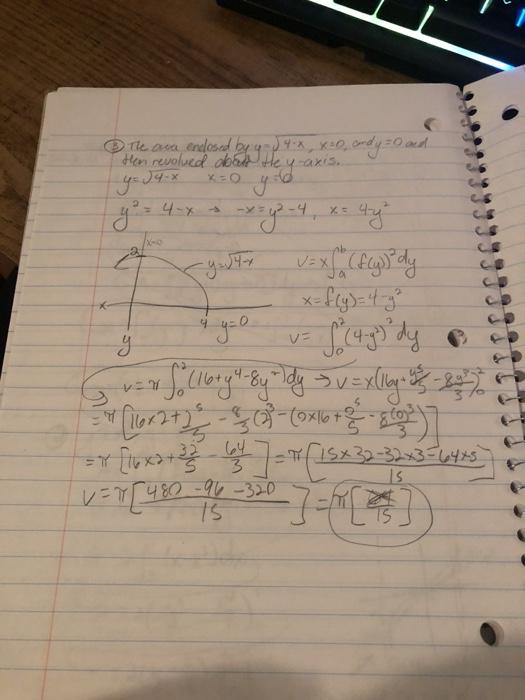 ③ The area enclosed by y=√4-x, x=0, and y=0 and
then revolved about the y-axis.
y=√4-x x=0 y=0
y² = 4-x → -x=y²-4, x= 4-y²
x=0
2
y=√4-x
x
4 y=0
y
v=x∫ₐᵇ(f(y))²dy
x=f(y)=4-y²
v= ∫₀²(4-y²)²dy
v=π∫₀²(16+y⁴-8y²)dy → v=x(16y+y⁵/5-8y³/3)₀²
=π[16x2+2⁵/5-8/3(2)³-(0x16+0⁵/5-8(0)³/3)]
=π[16x2+32/5-64/3]=π[15x32-32x3-64x5/15]
v=π[480-96-320/15]=π[/15]